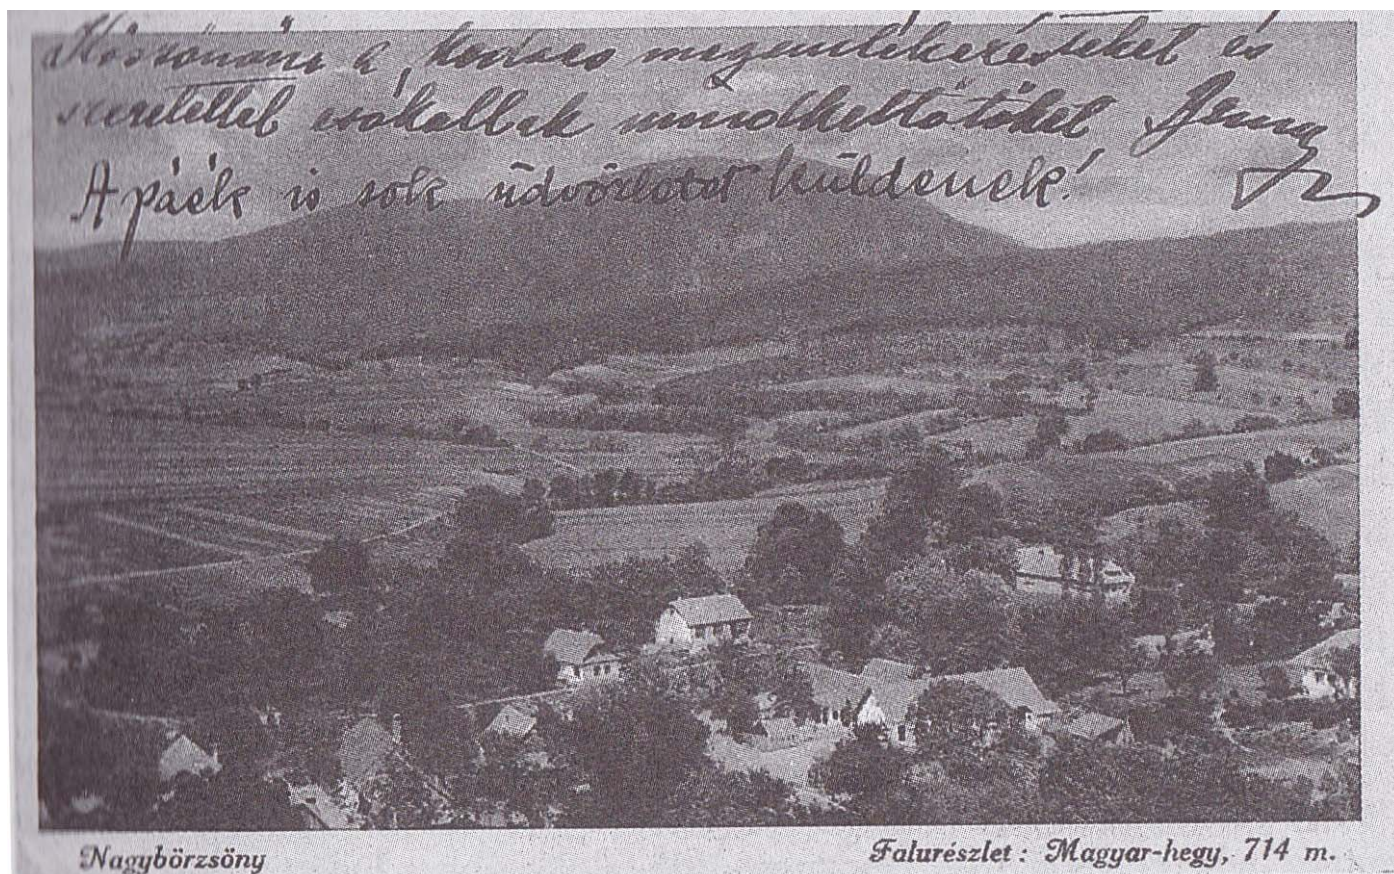 Köszönöm a kedves megemlékezéseket és
szeretettel csókollak mindkettőtöket Jenny
Apáék is sok üdvözletet küldenek!
Nagybörzsöny
Falurészlet: Magyar-hegy, 714 m.